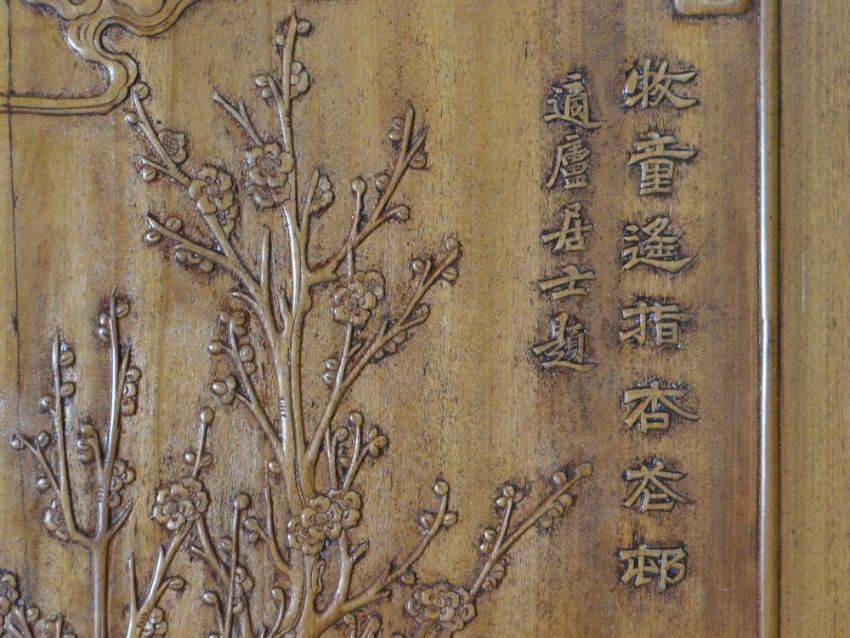 牧童遙指杏花邨
適廬居士題